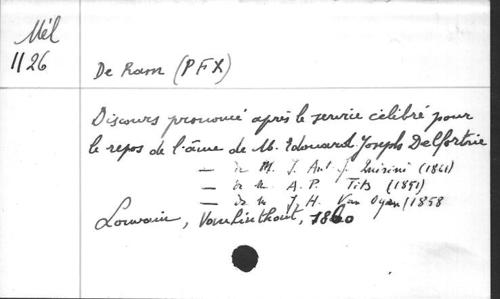 Mél
1126
De Ram (PFX)
Discours prononcé après le service célébré pour
le repos de l'âme de M. Edouard Joseph Delfortrie
— de M. J. Ant. J. (1861)
— de M. A. P. Tits (1851)
— de M J. H. Van Oyen (1858
Louvain, Vanlinthout, 1860